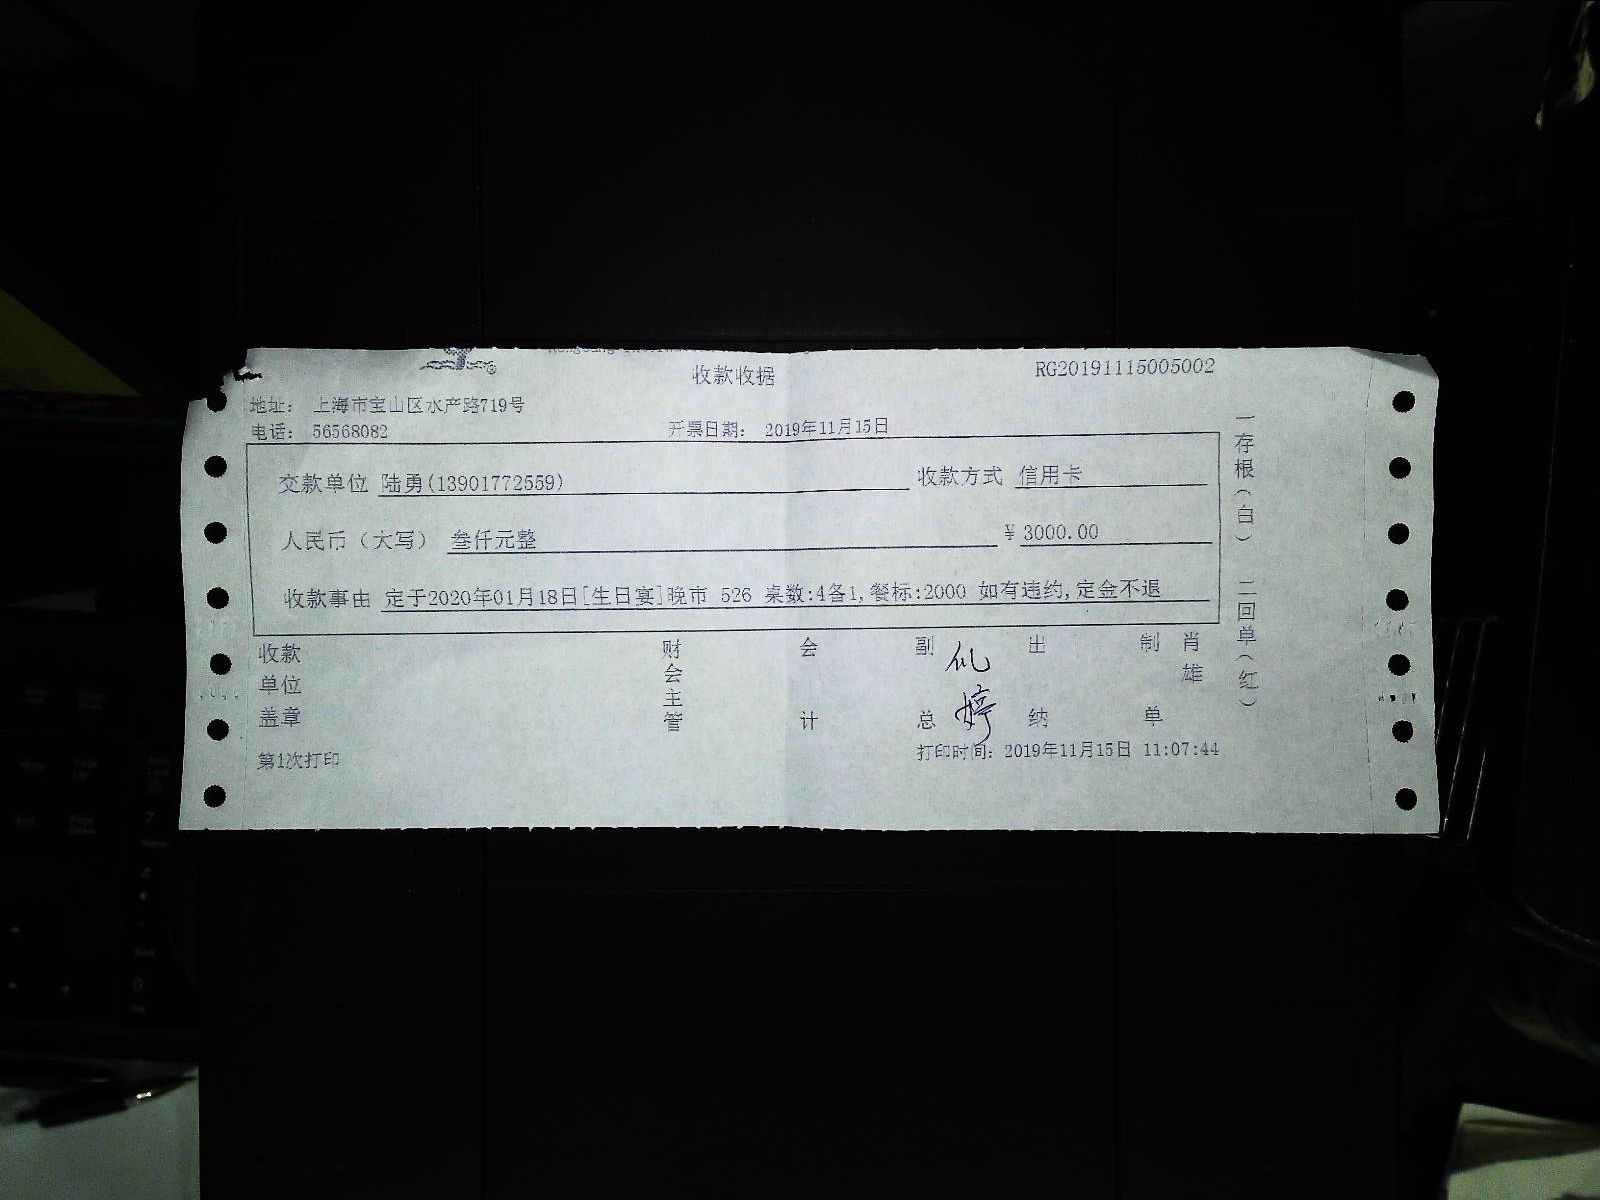 收款收据
RG20191115005002
地址： 上海市宝山区水产路719号
电话： 56568082
开票日期： 2019年11月15日
交款单位 陆勇(13901772559)
收款方式 信用卡
人民币（大写） 叁仟元整
￥3000.00
收款事由 定于2020年01月18日[生日宴]晚市 526 桌数:4备1,餐标:2000 如有违约,定金不退
收款单位盖章
财会主管
会计
副总
婷
出纳
制单
肖雄
一存根（白） 二回单（红）
第1次打印
打印时间: 2019年11月15日 11:07:44